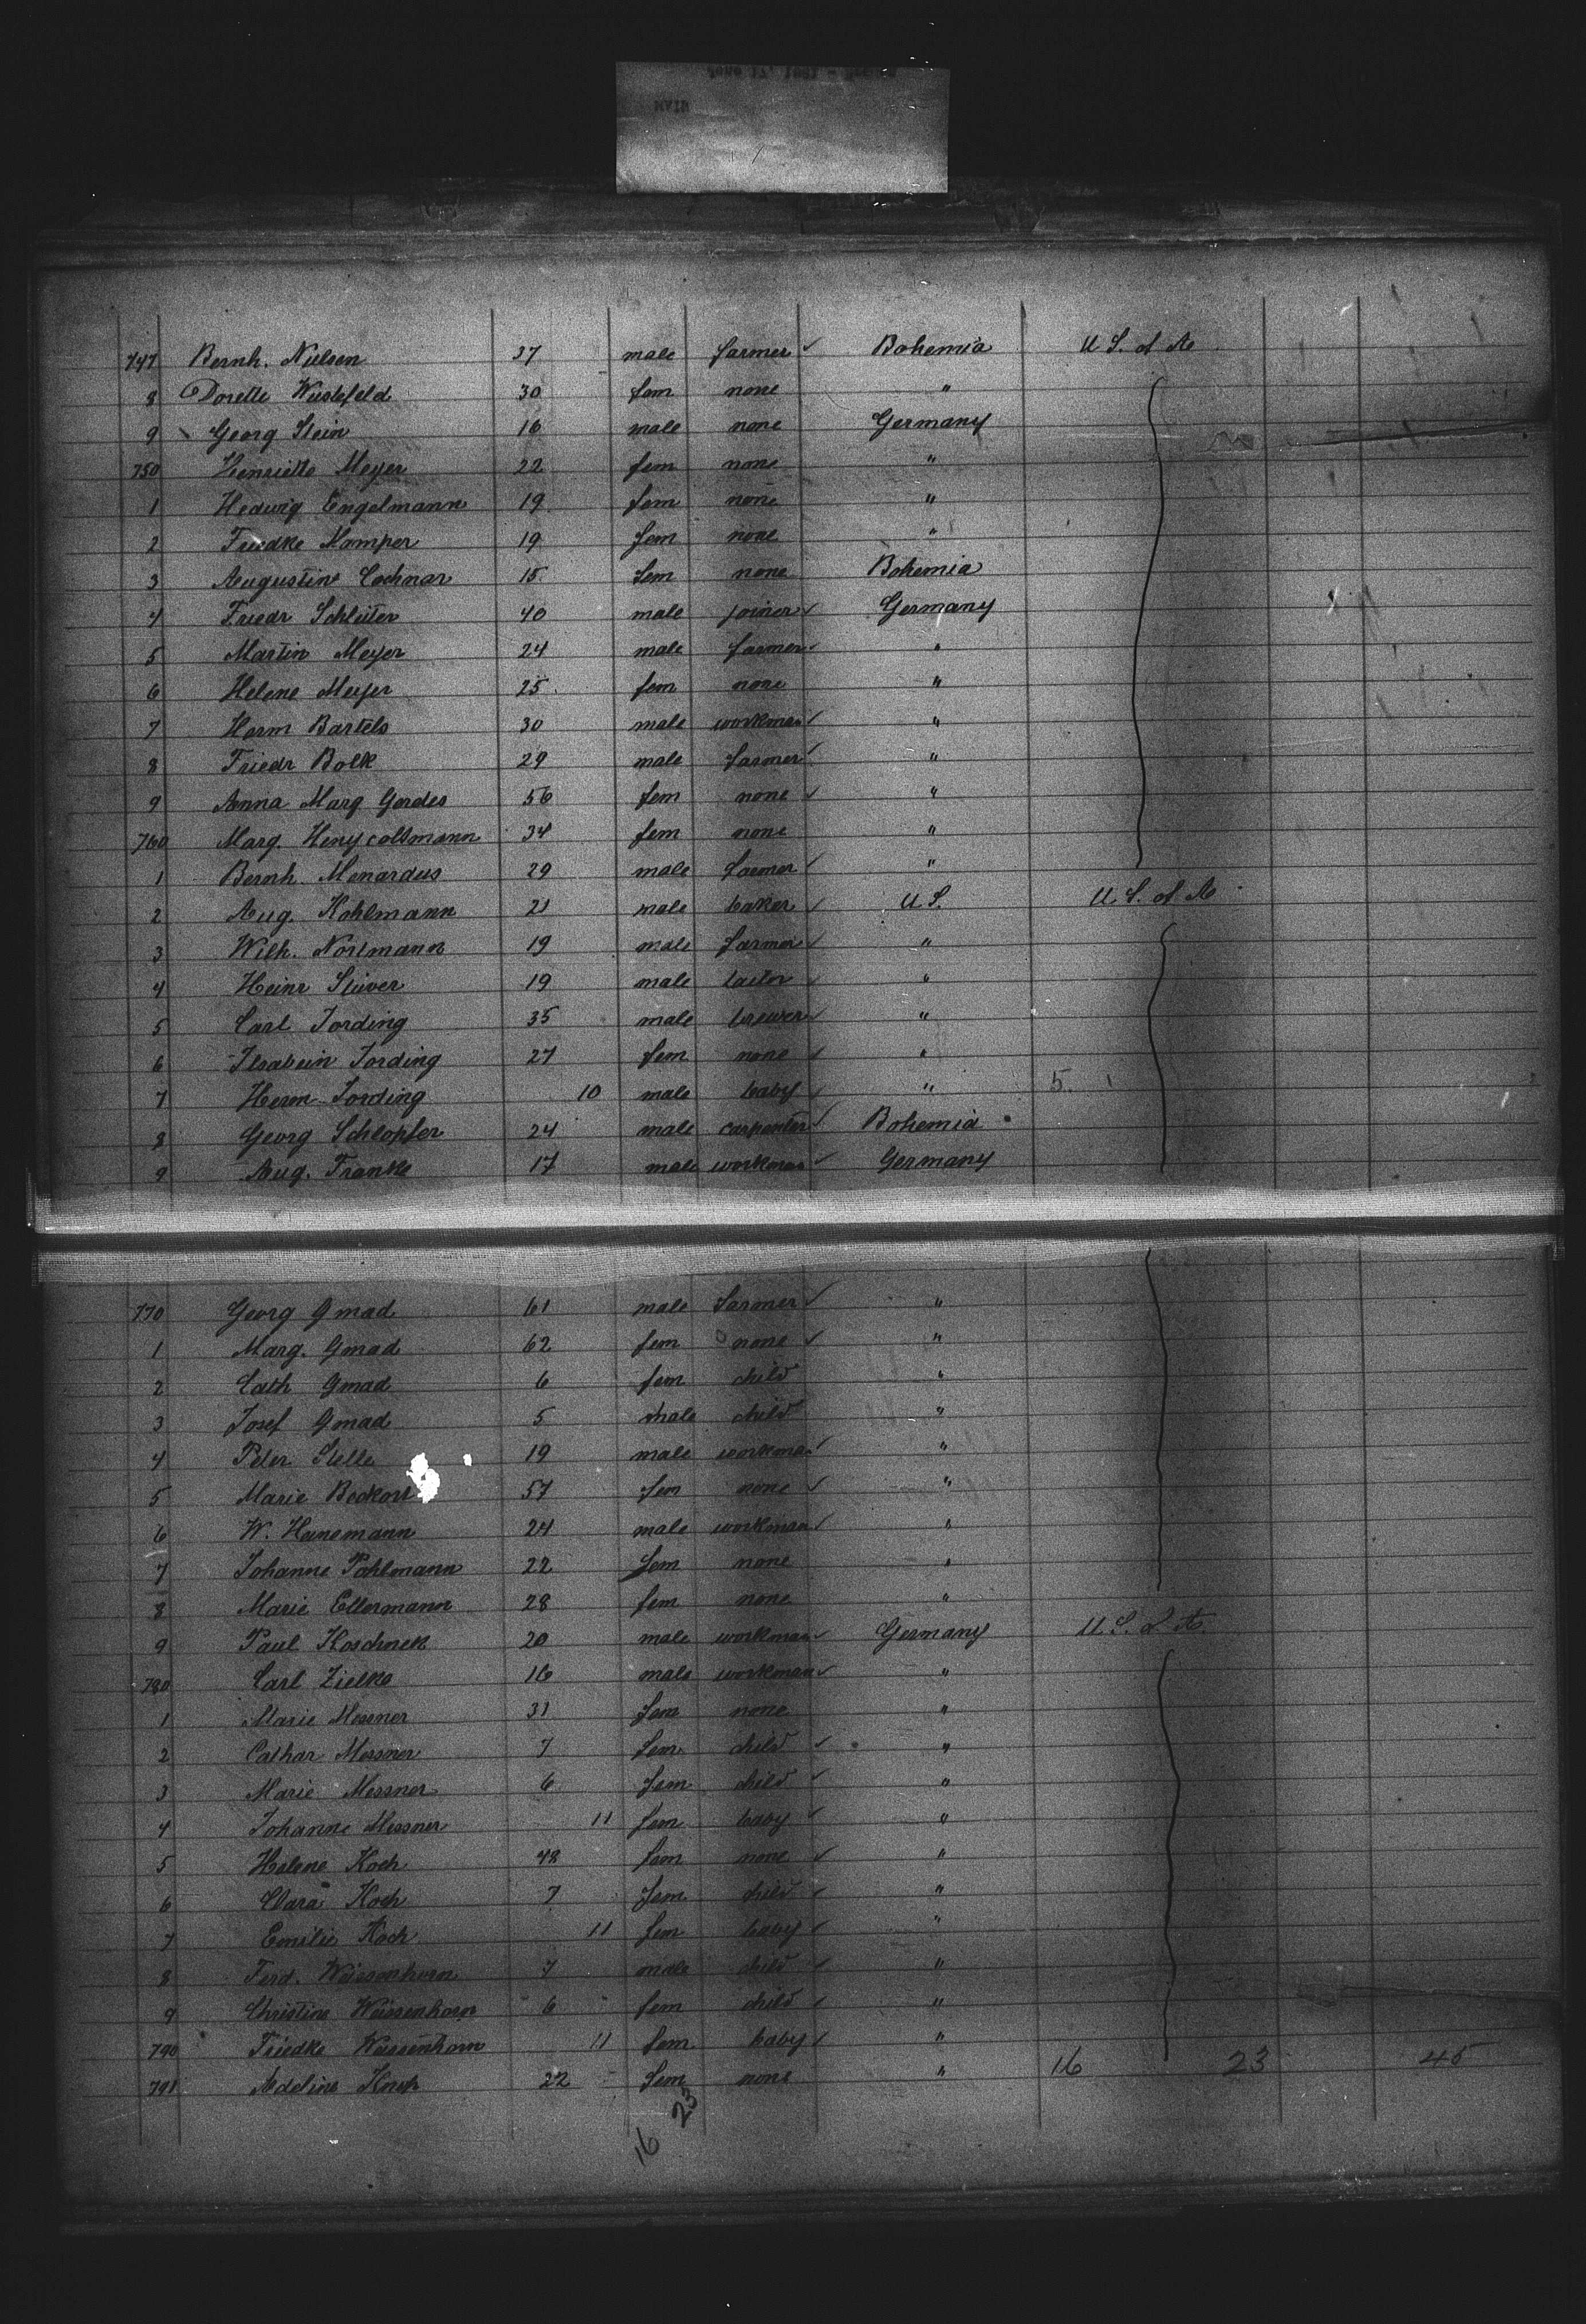 747 Bernh. Nielsen 37 male farmer ✓ Bohemia U S. of A
8 Dorette Wüstefeld 30 fem none "
9 Georg Stein 16 male none Germany
750 Henriette Meyer 22 fem none "
1 Hedwig Engelmann 19 fem none "
2 Friedke Kamper 19 fem none "
3 Augustine Cochnar 15 fem none Bohemia
4 Friedr Schlüter 40 male joiner ✓ Germany
5 Martin Meyer 24 male farmer ✓ "
6 Helene Meyer 25 fem none "
7 Herm Bartels 30 male workman ✓ "
8 Friedr Bolk 29 male farmer ✓ "
9 Anna Marg. Gerdes 56 fem none ✓ "
760 Marg. 34 fem none "
1 Bernh. Menardus 29 male farmer ✓ "
2 Aug. Kohlmann 21 male baker ✓ U S. U S. of A
3 Wilh. Nortmann 19 male farmer ✓ "
4 Heinr Stüver 19 male tailor ✓ "
5 Carl Jording 35 male brewer ✓ "
6 Ilsabein Jording 27 fem none ✓ "
7 Herm Jording 10 male baby ✓ " 5.
8 Georg Schlopfer 24 male carpenter ✓ Bohemia
9 Aug. Franke 17 male workman ✓ Germany
770 Georg Gmad 61 male farmer ✓ "
1 Marg. Gmad 62 fem none ✓ "
2 Cath Gmad 6 fem child "
3 Josef Gmad 5 male child "
4 Peter Stelle 19 male workman ✓ "
5 Marie 57 fem none ✓ "
6 W. Hanemann 24 male workman ✓ "
7 Johanne Pahlmann 22 fem none "
8 Marie Ellermann 28 fem none "
9 Paul Koschnek 20 male workman ✓ Germany U. S. of A.
780 Carl Zielke 16 male workman ✓ "
1 Marie Messner 31 fem none "
2 Cathar Messner 7 fem child ✓ "
3 Marie Messner 6 fem child ✓ "
4 Johanne Messner 11 fem baby ✓ "
5 Helene Koch 48 fem none ✓ "
6 Clara Koch 7 fem child ✓ "
7 Emilie Koch 11 fem baby ✓ "
8 Ferd. Weissenhorn 7 male child ✓ "
9 Christine Weissenhorn 6 fem child ✓ "
790 Friedke Weissenhorn 11 fem baby ✓ "
791 Adeline 22 fem none " 16 23 45
16 23